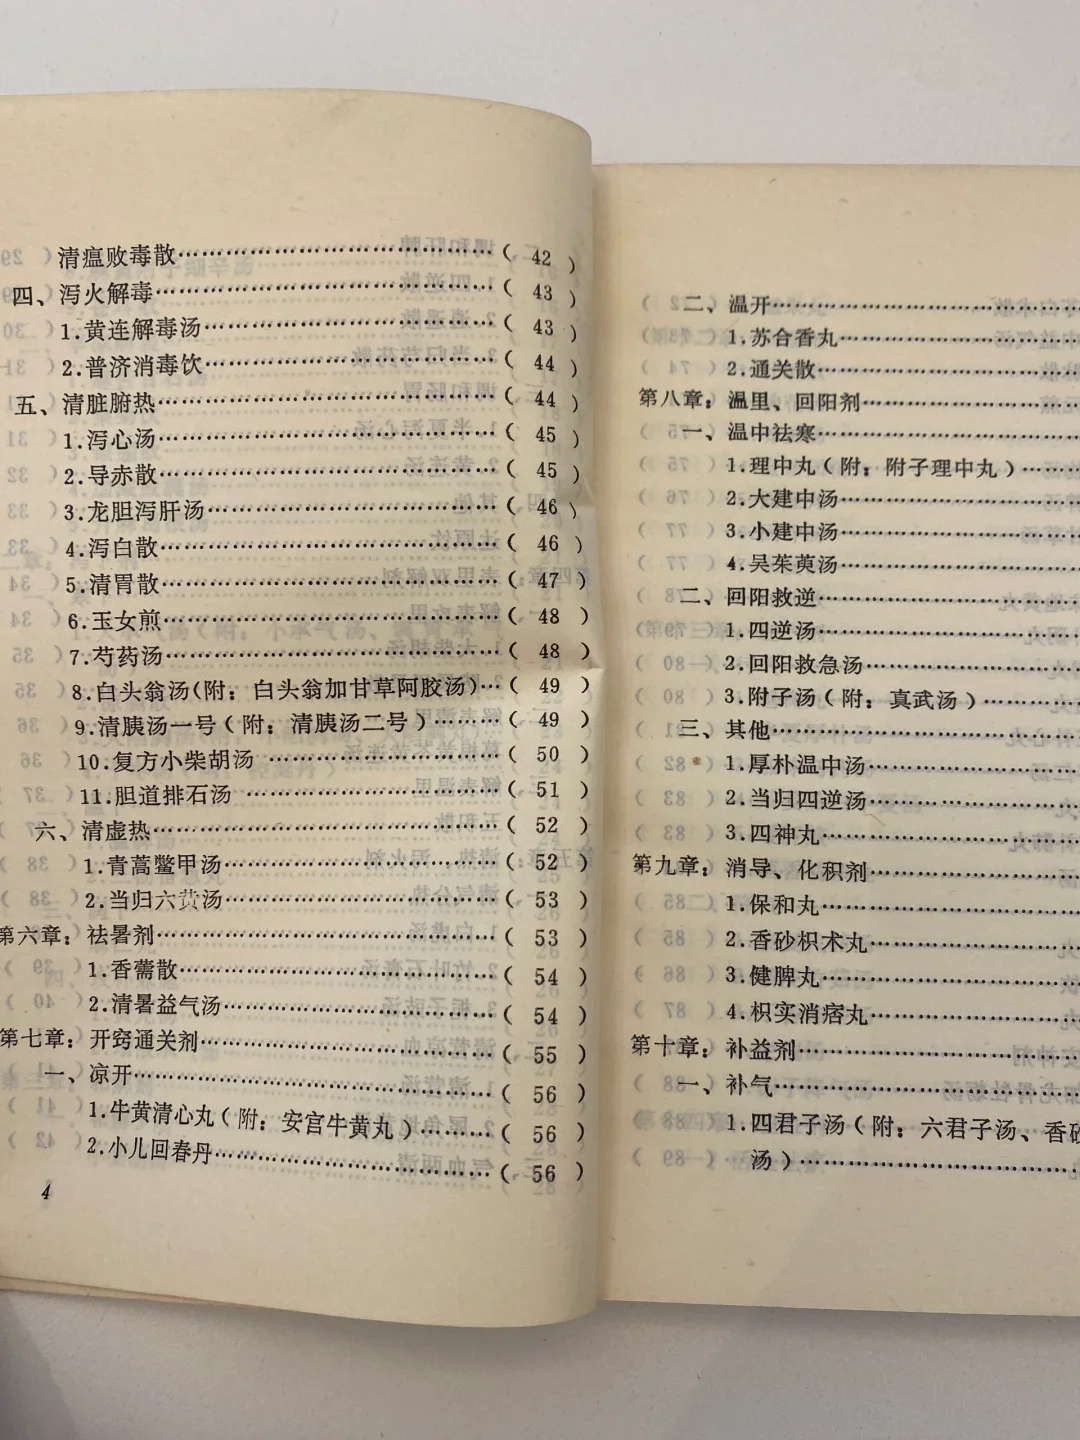 清瘟败毒散……………………………………( 42 )
四、泻火解毒……………………………………( 43 )
1.黄连解毒汤……………………………………( 43 )
2.普济消毒饮……………………………………( 44 )
五、清脏腑热……………………………………( 44 )
1.泻心汤……………………………………( 45 )
2.导赤散……………………………………( 45 )
3.龙胆泻肝汤……………………………………( 46 )
4.泻白散……………………………………( 46 )
5.清胃散……………………………………( 47 )
6.玉女煎……………………………………( 48 )
7.芍药汤……………………………………( 48 )
8.白头翁汤(附:白头翁加甘草阿胶汤)…( 49 )
9.清胰汤一号(附:清胰汤二号)…………( 49 )
10.复方小柴胡汤……………………………( 50 )
11.胆道排石汤………………………………( 51 )
六、清虚热……………………………………( 52 )
1.青蒿鳖甲汤……………………………………( 52 )
2.当归六黄汤……………………………………( 53 )
第六章:祛暑剂……………………………………( 53 )
1.香薷散……………………………………( 54 )
2.清暑益气汤……………………………………( 54 )
第七章:开窍通关剂……………………………………( 55 )
一、凉开……………………………………( 56 )
1.牛黄清心丸(附:安宫牛黄丸)…………( 56 )
2.小儿回春丹……………………………………( 56 )
4
二、温开……………………
1.苏合香丸……………………
2.通关散……………………
第八章:温里、回阳剂……………………
一、温中祛寒……………………
1.理中丸(附:附子理中丸)……
2.大建中汤……………………
3.小建中汤……………………
4.吴茱萸汤……………………
二、回阳救逆……………………
1.四逆汤……………………
2.回阳救急汤……………………
3.附子汤(附:真武汤)…………
三、其他……………………
1.厚朴温中汤……………………
2.当归四逆汤……………………
3.四神丸……………………
第九章:消导、化积剂……………………
一、保和丸……………………
2.香砂枳术丸……………………
3.健脾丸……………………
4.枳实消痞丸……………………
第十章:补益剂……………………
一、补气……………………
1.四君子汤(附:六君子汤、香砂
汤)……………………